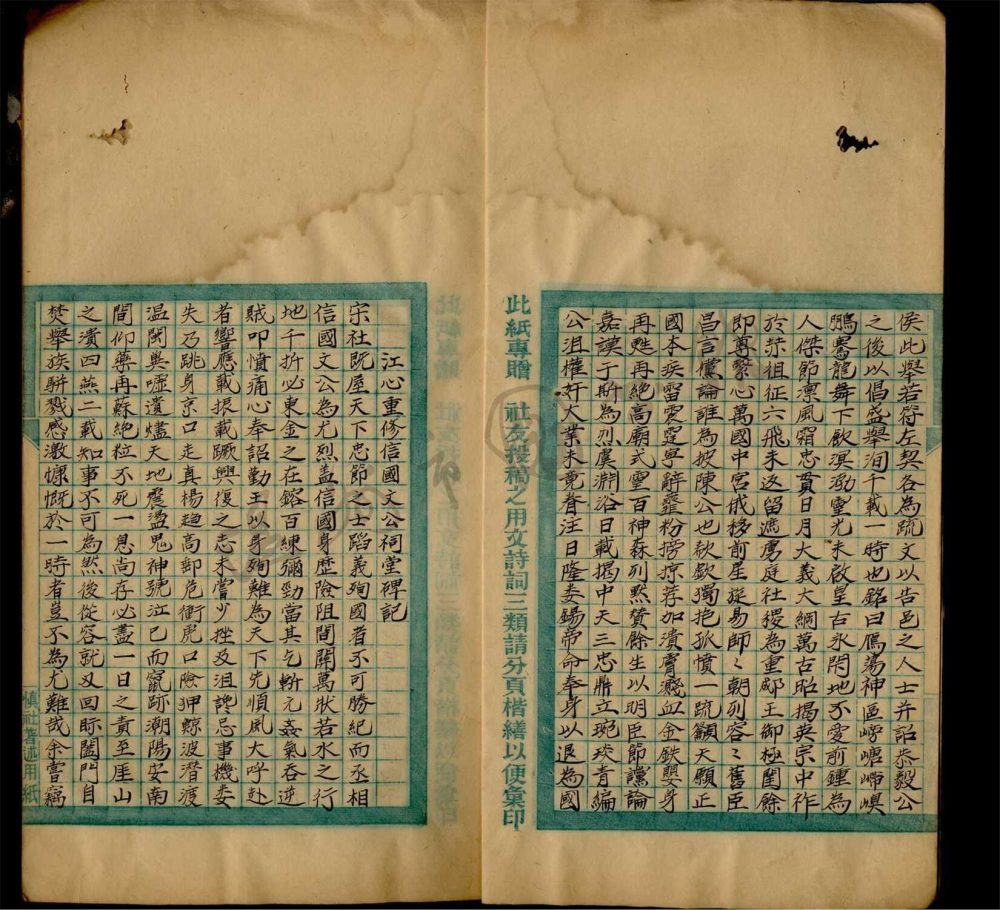 侯此舉若符左契各為疏文以告邑之人士并詔恭毅公
之後以倡盛舉洵千載一時也銘曰鴈蕩神區嵱嵣崹嶼
鵬騫龍舞下飲溟渤靈光未啟皇古永閟地不愛前鍾為
人傑節凜風霜忠貫日月大義大綱萬古昭揭英宗中祚
於赫徂征六飛未返留遮虜庭社稷為重郕王御極閏餘
即尊繫心萬國中宮俄移前星旋易師〻朝列容〻舊臣
昌言儻論誰為披陳公也欷歔獨抱孤憤一疏籲天願正
國本疾雷震霆寧辭虀粉搒掠荐加潰膚濺血金鉄與身
再甦再絕高廟式靈百神森列黙贊餘生以明臣節讜論
嘉謨于斯為烈虞淵浴日載揭中天三忠鼎立琬琰青編
公沮權奸大業未竟眷注日隆委錫帝命奉身以退為國
此紙專贈 社友投稿之用文詩詞二類請分頁楷繕以便彙印
江心重修信國文公祠堂碑記
宋社既屋天下忠節之士蹈義殉國者不可勝紀而丞相
信國文公為尤烈盖信國身歴險阻間關萬狀若水之行
地千折必東金之在鎔百練彌勁當其乞斬元姦氣吞逆
賊叩憤痛心奉詔勤王以身殉難為天下先順風大呼赴
者響應載振載蹶興復之志未嘗少挫及沮讒忌事機委
失乃跳身京口走真楊趋高郵危衝虎口險狎鯨波潛渡
温閩奥嘘遺燼天地震盪鬼神號泣已而竄跡潮陽安南
間仰藥再蘇絶粒不死一息尚存必盡一日之責至厓山
之潰囚燕二載知事不可為然後從容就义回眎闔門自
焚舉族駢戮感激慷慨於一時者豈不為尤難哉余嘗竊
慎社著述用紙